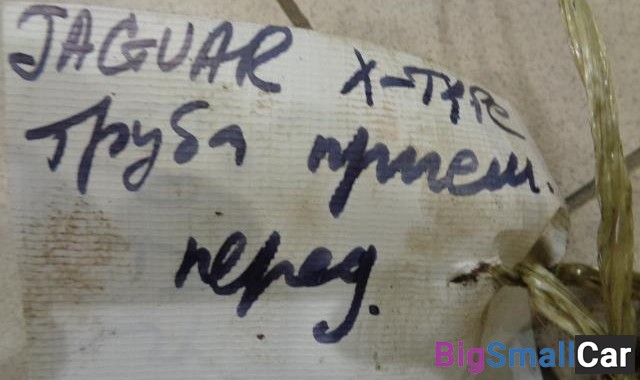 JAGUAR X-TYPE
труба прием.
перед.
BigSmallCar